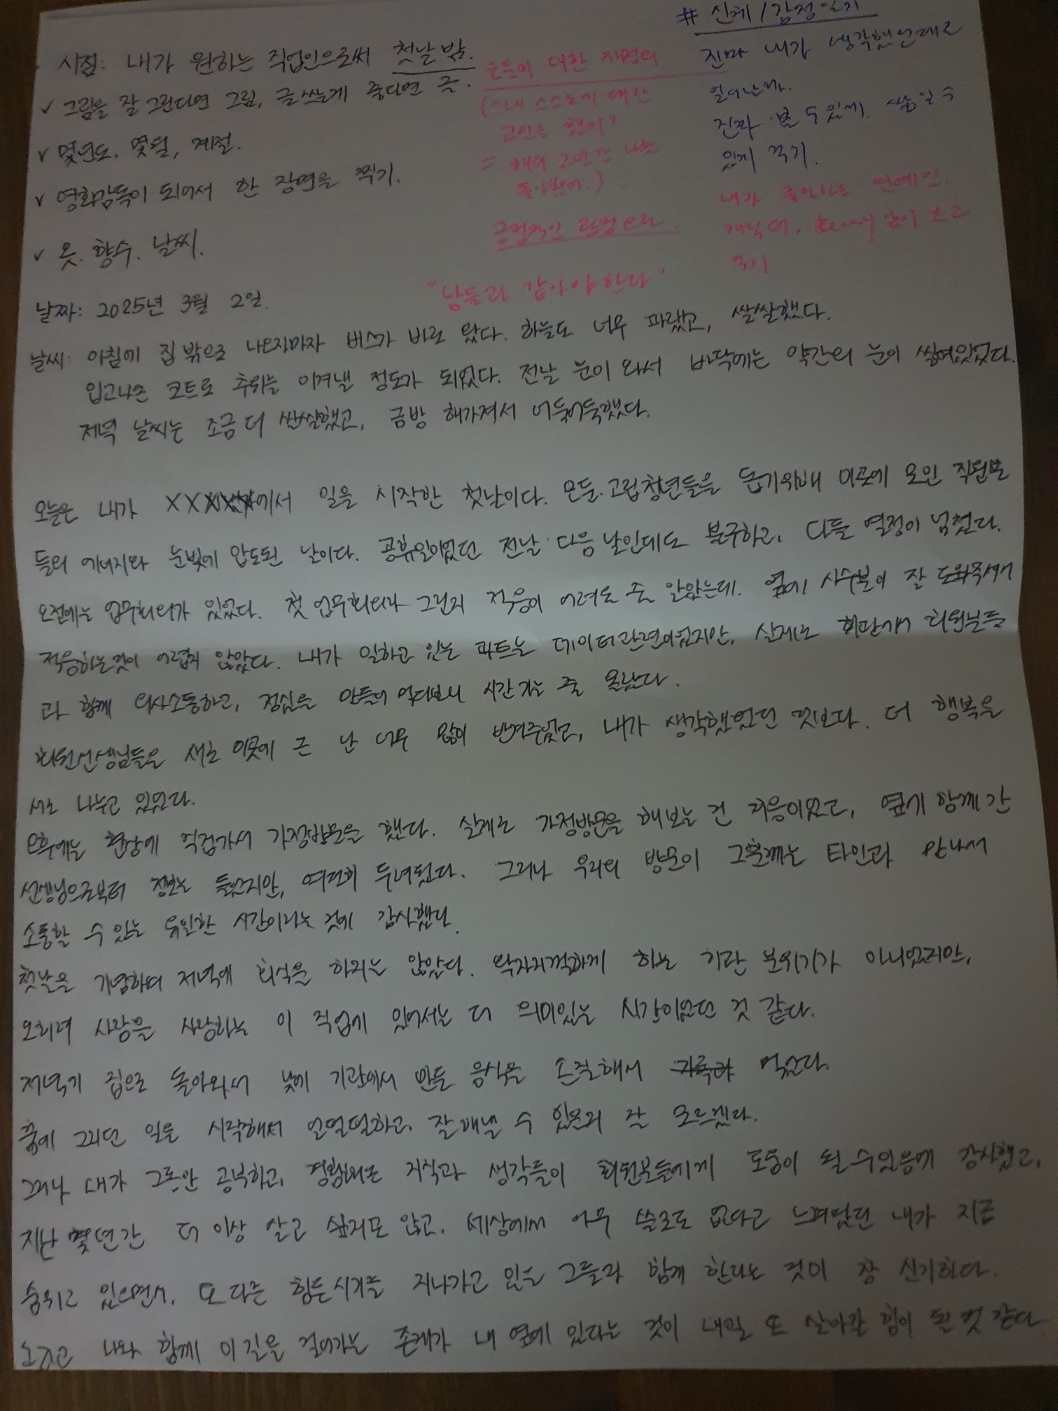 # 신체/감정 일기
시점: 내가 원하는 직업인으로써 첫날 밤.
✓ 그림을 잘 그린다면 그림, 글쓰는게 좋다면 글.
✓ 몇년도, 몇월, 계절.
✓ 영화감독이 되어서 한 장면을 찍기.
✓ 옷, 향수, 날씨.
은둔에 대한 재정의
("내 스스로에 대한
고민을 했지"
= 해며 2년간 나를
돌아봤어.)
긍정적인 관점으로
"남들과 같아야 한다"
진짜 내가 생각했던대로
일어난다.
진짜 볼 수 있게,
있게 적기.
내가 좋아하는 연예인,
같이 보고
적기
날짜: 2025년 3월 2일.
날씨: 아침에 집 밖으로 나오자마자 버스가 바로 왔다. 하늘도 너무 파랬고, 쌀쌀했다.
입고나온 코트로 추위를 이겨낼 정도가 되었다. 전날 눈이 와서 바닥에는 약간의 눈이 쌓여있었다.
저녁 날씨는 조금 더 쌀쌀했고, 금방 해가져서 어둑어둑했다.
오늘은 내가 XXXXX에서 일을 시작한 첫날이다. 은둔·고립청년들을 돕기위해 이곳에 모인 직원분
들의 에너지와 눈빛에 압도된 날이다. 공휴일이었던 전날 다음 날인데도 불구하고, 다들 열정이 넘쳤다.
오전에는 업무회의가 있었다. 첫 업무회의라 그런지 적응이 어려울 줄 알았는데, 옆에 사수분이 잘 도와주셔서
적응하는것이 어렵지 않았다. 내가 일하고 있는 파트는 데이터관련이었지만, 실제로 회관에서 회원분들
과 함께 의사소통하고, 점심을 만들어 먹다보니 시간 가는 줄 몰랐다.
회원선생님들은 새로 이곳에 온 난 너무 많이 반겨주었고, 내가 생각했었던 것보다 더 행복을
서로 나누고 있었다.
오후에는 현장에 직접가서 가정방문을 했다. 실제로 가정방문을 해보는 건 처음이었고, 옆에 함께 간
선생님으로부터 정보는 들었지만, 여전히 두려웠다. 그러나 우리의 방문이 그들에게는 타인과 만나서
소통할 수 있는 유일한 시간이라는 것에 감사했다.
첫날을 기념하며 저녁에 회식을 하지는 않았다. 왁자지껄하게 하는 기관 분위기가 아니었지만,
오히려 사람을 사랑하는 이 직업에 있어서는 더 의미있는 시간이었던 것 같다.
저녁에 집으로 돌아와서 낮에 기관에서 만든 음식을 소분해서 먹었다.
꿈에 그리던 일을 시작해서 얼떨떨하고, 잘해낼 수 있을지 잘 모르겠다.
그러나 내가 그동안 공부하고, 경험해온 지식과 생각들이 회원분들에게 도움이 될 수있음에 감사했고,
지난 몇년간 더 이상 살고 싶지도 않고, 세상에서 아무 쓸모도 없다고 느껴왔던 내가 지금
숨쉬고 있으면서, 또 다른 힘든시기를 지나가고 있는 그들과 함께 한다는 것이 참 신기하다.
그리고 나와 함께 이 길을 걸어가는 존재가 내 옆에 있다는 것이 내일 또 살아갈 힘이 된 것 같다